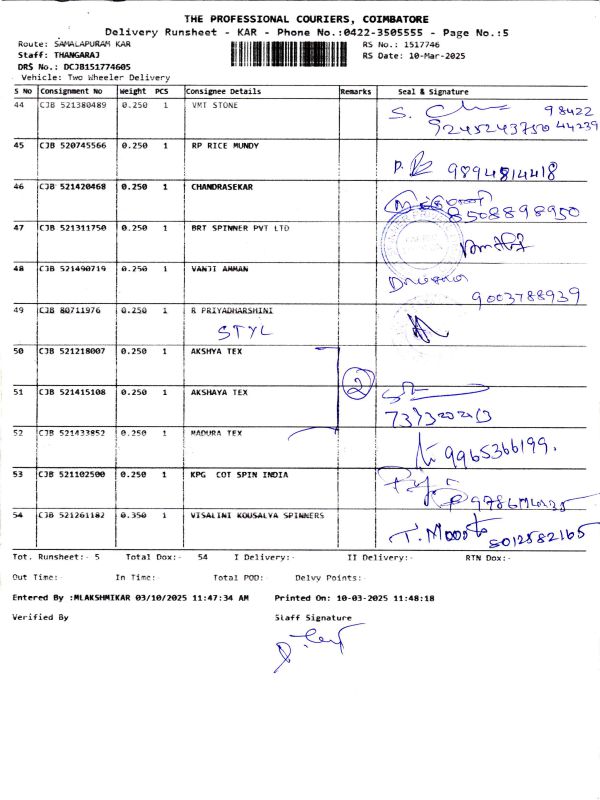 THE PROFESSIONAL COURIERS, COIMBATORE
Delivery Runsheet - KAR - Phone No.:0422-3505555 - Page No.:5
Route: SAMALAPURAM KAR RS No.: 1517746
Staff: THANGARAJ RS Date: 10-Mar-2025
DRS No.: DCJB151774605
Vehicle: Two Wheeler Delivery
S No Consignment No Weight PCS Consignee Details Remarks Seal & Signature
44 CJB 521380489 0.250 1 VMT STONE 98422
9245243750 44239
45 CJB 520745566 0.250 1 RP RICE MUNDY
9894814418
46 CJB 521420468 0.250 1 CHANDRASEKAR
8508898950
47 CJB 521311750 0.250 1 BRT SPINNER PVT LTD
48 CJB 521490719 0.250 1 VANJI AMMAN
9003788939
49 CJB 80711976 0.250 1 R PRIYADHARSHINI
STYL
50 CJB 521218007 0.250 1 AKSHYA TEX
2
51 CJB 521415108 0.250 1 AKSHAYA TEX
52 CJB 521433852 0.250 1 MADURA TEX
9965366199.
53 CJB 521102500 0.250 1 KPG COT SPIN INDIA
54 CJB 521261182 0.350 1 VISALINI KOUSALYA SPINNERS
8012582165
Tot. Runsheet:- 5 Total Dox:- 54 I Delivery:- II Delivery:- RTN Dox:-
Out Time:- In Time: Total POD:- Delvy Points:-
Entered By :MLAKSHMIKAR 03/10/2025 11:47:34 AM Printed On: 10-03-2025 11:48:18
Verified By Staff Signature